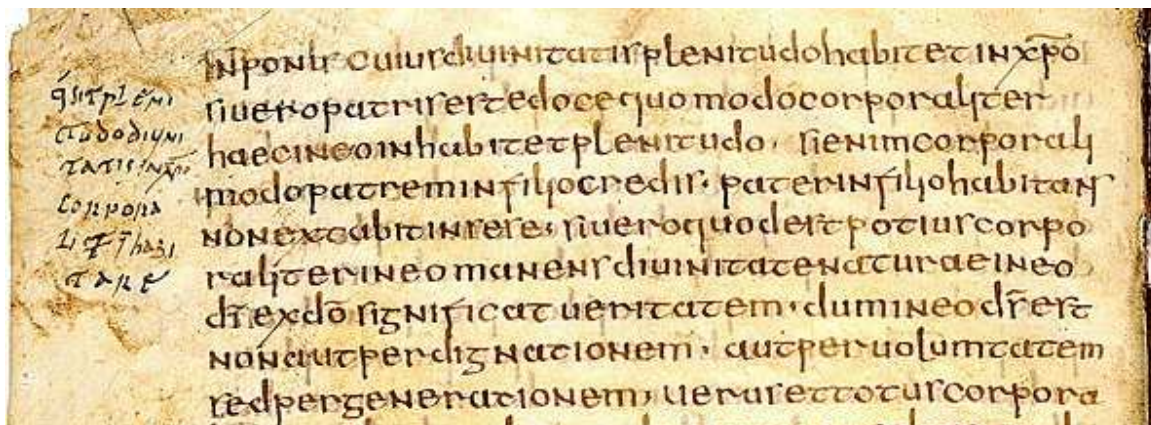 q̄sitpleni
tudodiuini
tatisinxp̄o
corpora
tare
inponis cuiusdiuinitatisplenitudohabitetinxp̄o
siueropatrisestedocequomodocorporaliter
haecineoinhabitetplenitudo· sienimcorporali
modopatreminfiliocredis· paterinfiliohabitans
nonextabitinsese· siueroquodestpotiuscorpo
raliterineomanensdiuinitatenaturaeineo
dī exdō significat ueritatem· dumineods̄est
nonautperdignationem· autperuolumtatem
sedpergenerationem· uerusettotuscorpora